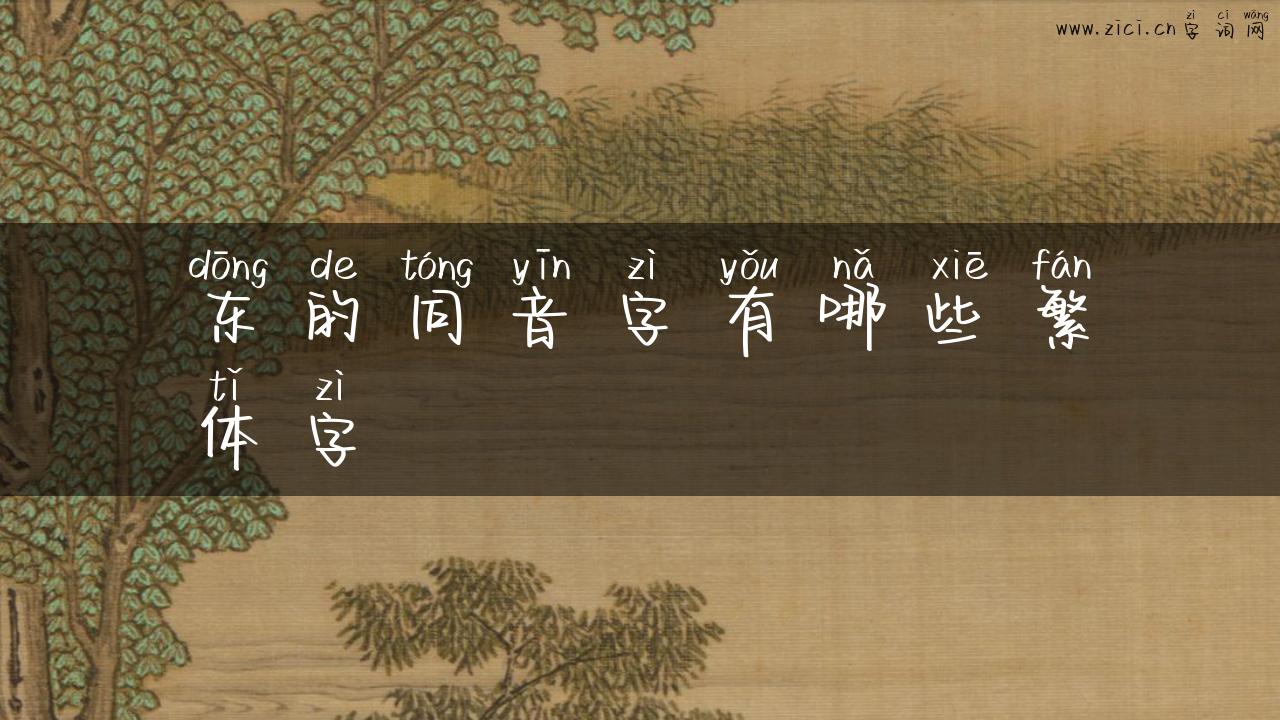 zì cí wǎng
www.zici.cn字词网
dōng de tóng yīn zì yǒu nǎ xiē fán
东的同音字有哪些繁
tǐ zì
体字